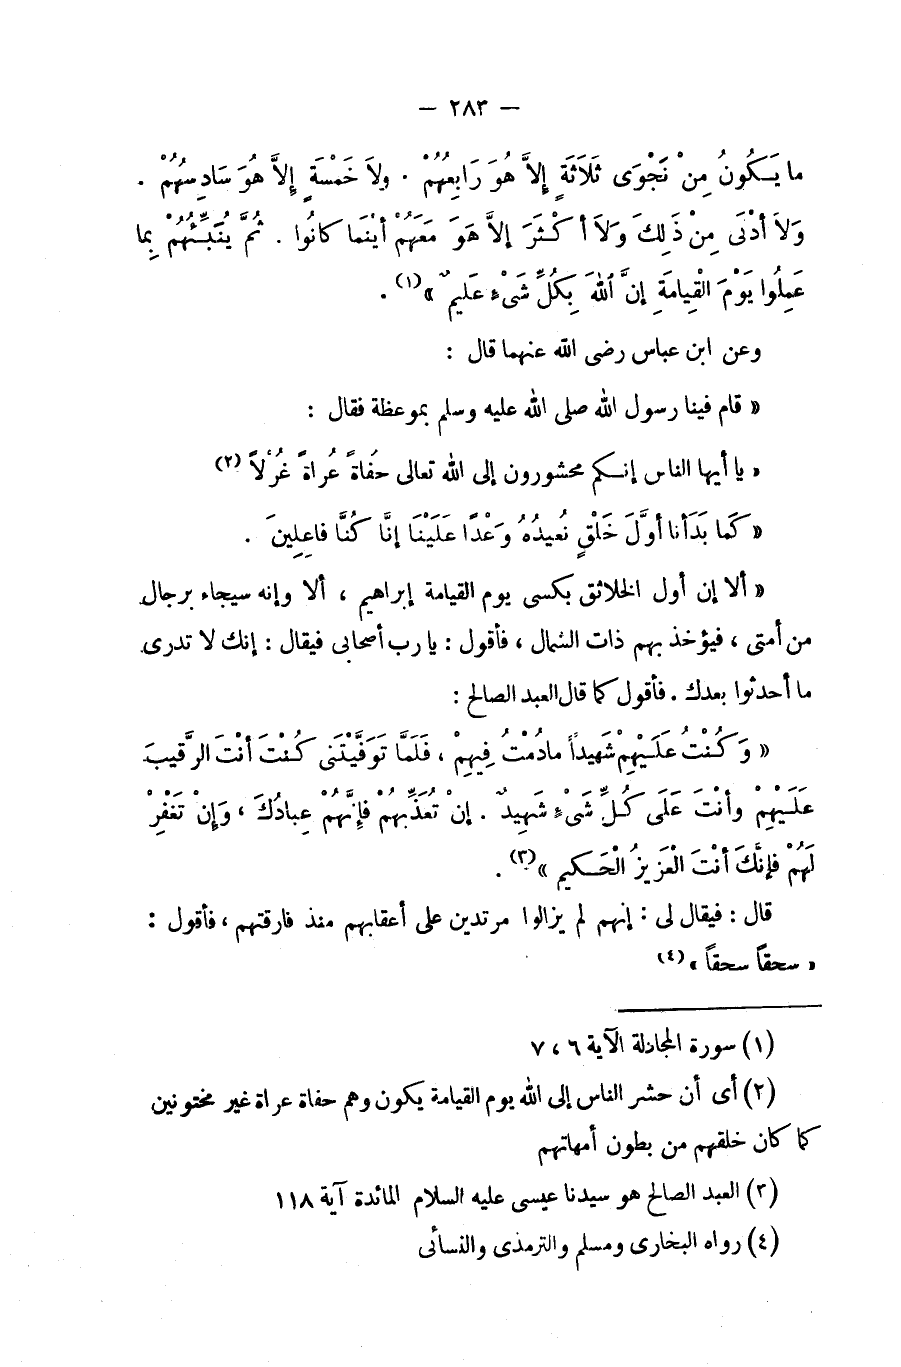 — ٢٨٣ —
ما يَكُونُ مِنْ نَجْوَى ثَلَاثَةٍ إِلاَّ هُوَ رَابِعُهُمْ . ولاَ خَمْسَةٍ إِلاَّ هُوَ سَادِسُهُمْ .
وَلاَ أدْنَى مِنْ ذَلِكَ وَلاَ أكْثَرَ إلاَّ هَوَ مَعَهُمْ أيْنَما كانُوا . ثُمَّ يُنَبِّئُهُمْ بِما
عَمِلُوا يَوْمَ الْقِيامَةِ إنَّ اللهَ بِكُلِّ شَىْءٍ عَلِيمٌ » (١) .
وعن ابن عباس رضى الله عنهما قال :
« قام فينا رسول الله صلى الله عليه وسلم بموعظة فقال :
« يا أيها الناس إنكم محشورون إلى الله تعالى حُفاةً عُراةً غُرْلاً (٢)
« كَما بَدَأنا أوَّلَ خَلْقٍ نُعِيدُهُ وَعْدًا عَلَيْنَا إنَّا كُنَّا فاعِلِينَ .
« ألا إن أول الخلائق يكسى يوم القيامة إبراهيم ، ألا وإنه سيجاء برجال
من أمتى ، فيؤخذ بهم ذات الشمال ، فأقول : يا رب أصحابى فيقال : إنك لا تدرى
ما أحدثوا بعدك . فأقول كما قال العبد الصالح :
« وَكُنْتُ عَلَيْهِمْ شَهِيداً مادُمْتُ فِيهِمْ ، فَلَمَّا تَوَفَّيْتَنى كُنْتَ أنْتَ الرَّقِيبَ
عَلَيْهِمْ وأنْتَ عَلَى كُلِّ شَىْءٍ شَهِيدٌ . إنْ تُعَذِّبْهُمْ فَإنَّهُمْ عِبادُكَ ، وَإنْ تَغْفِرْ
لَهُمْ فإنَّكَ أنْتَ الْعَزِيزُ الْحَكيم » (٣) .
قال : فيقال لى : إنهم لم يزالوا مرتدين على أعقابهم منذ فارقتهم ، فأقول :
« سحقاً سحقاً » (٤)
(١) سورة المجادلة الآية ٦ ، ٧
(٢) أى أن حشر الناس إلى الله يوم القيامة يكون وهم حفاة عراة غير مختونين
كما كان خلقهم من بطون أمهاتهم
(٣) العبد الصالح هو سيدنا عيسى عليه السلام المائدة آية ١١٨
(٤) رواه البخارى ومسلم والترمذى والنسائى